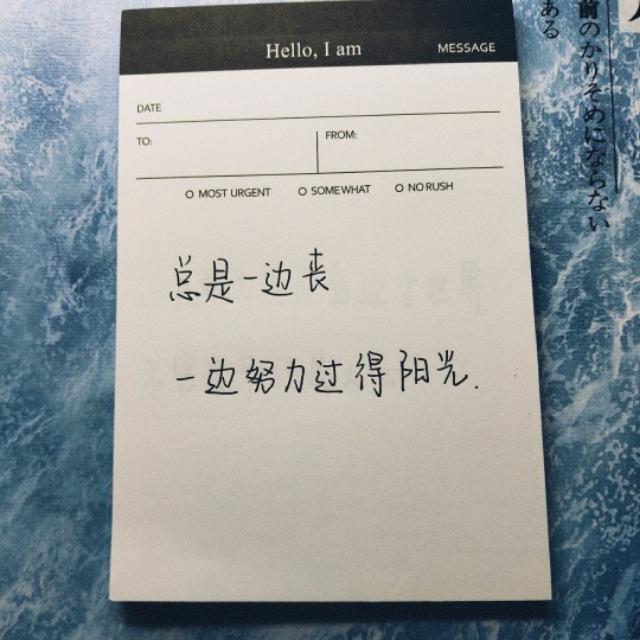 Hello, I am
MESSAGE
DATE
TO:
FROM:
MOST URGENT
SOMEWHAT
NO RUSH
总是一边丧
一边努力过得阳光.
前のかりそめにならない
ある